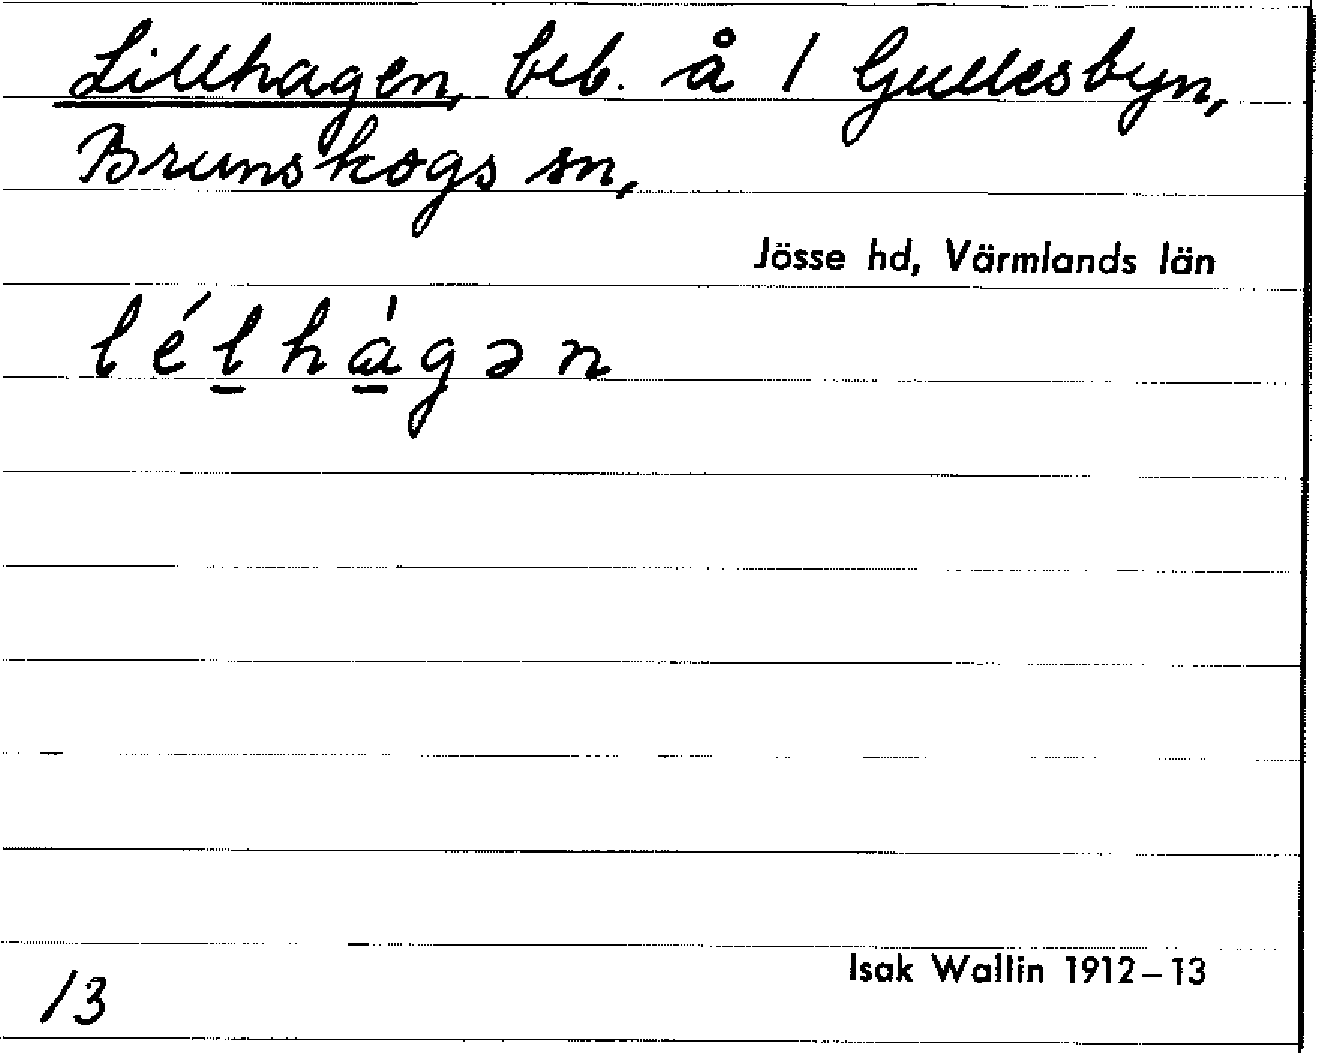 Lillhagen, beb. å 1 Gullesbyn,
Brunskogs sn,
Jösse hd, Värmlands län
lél̲hà̲gən
Isak Wallin 1912–13
13